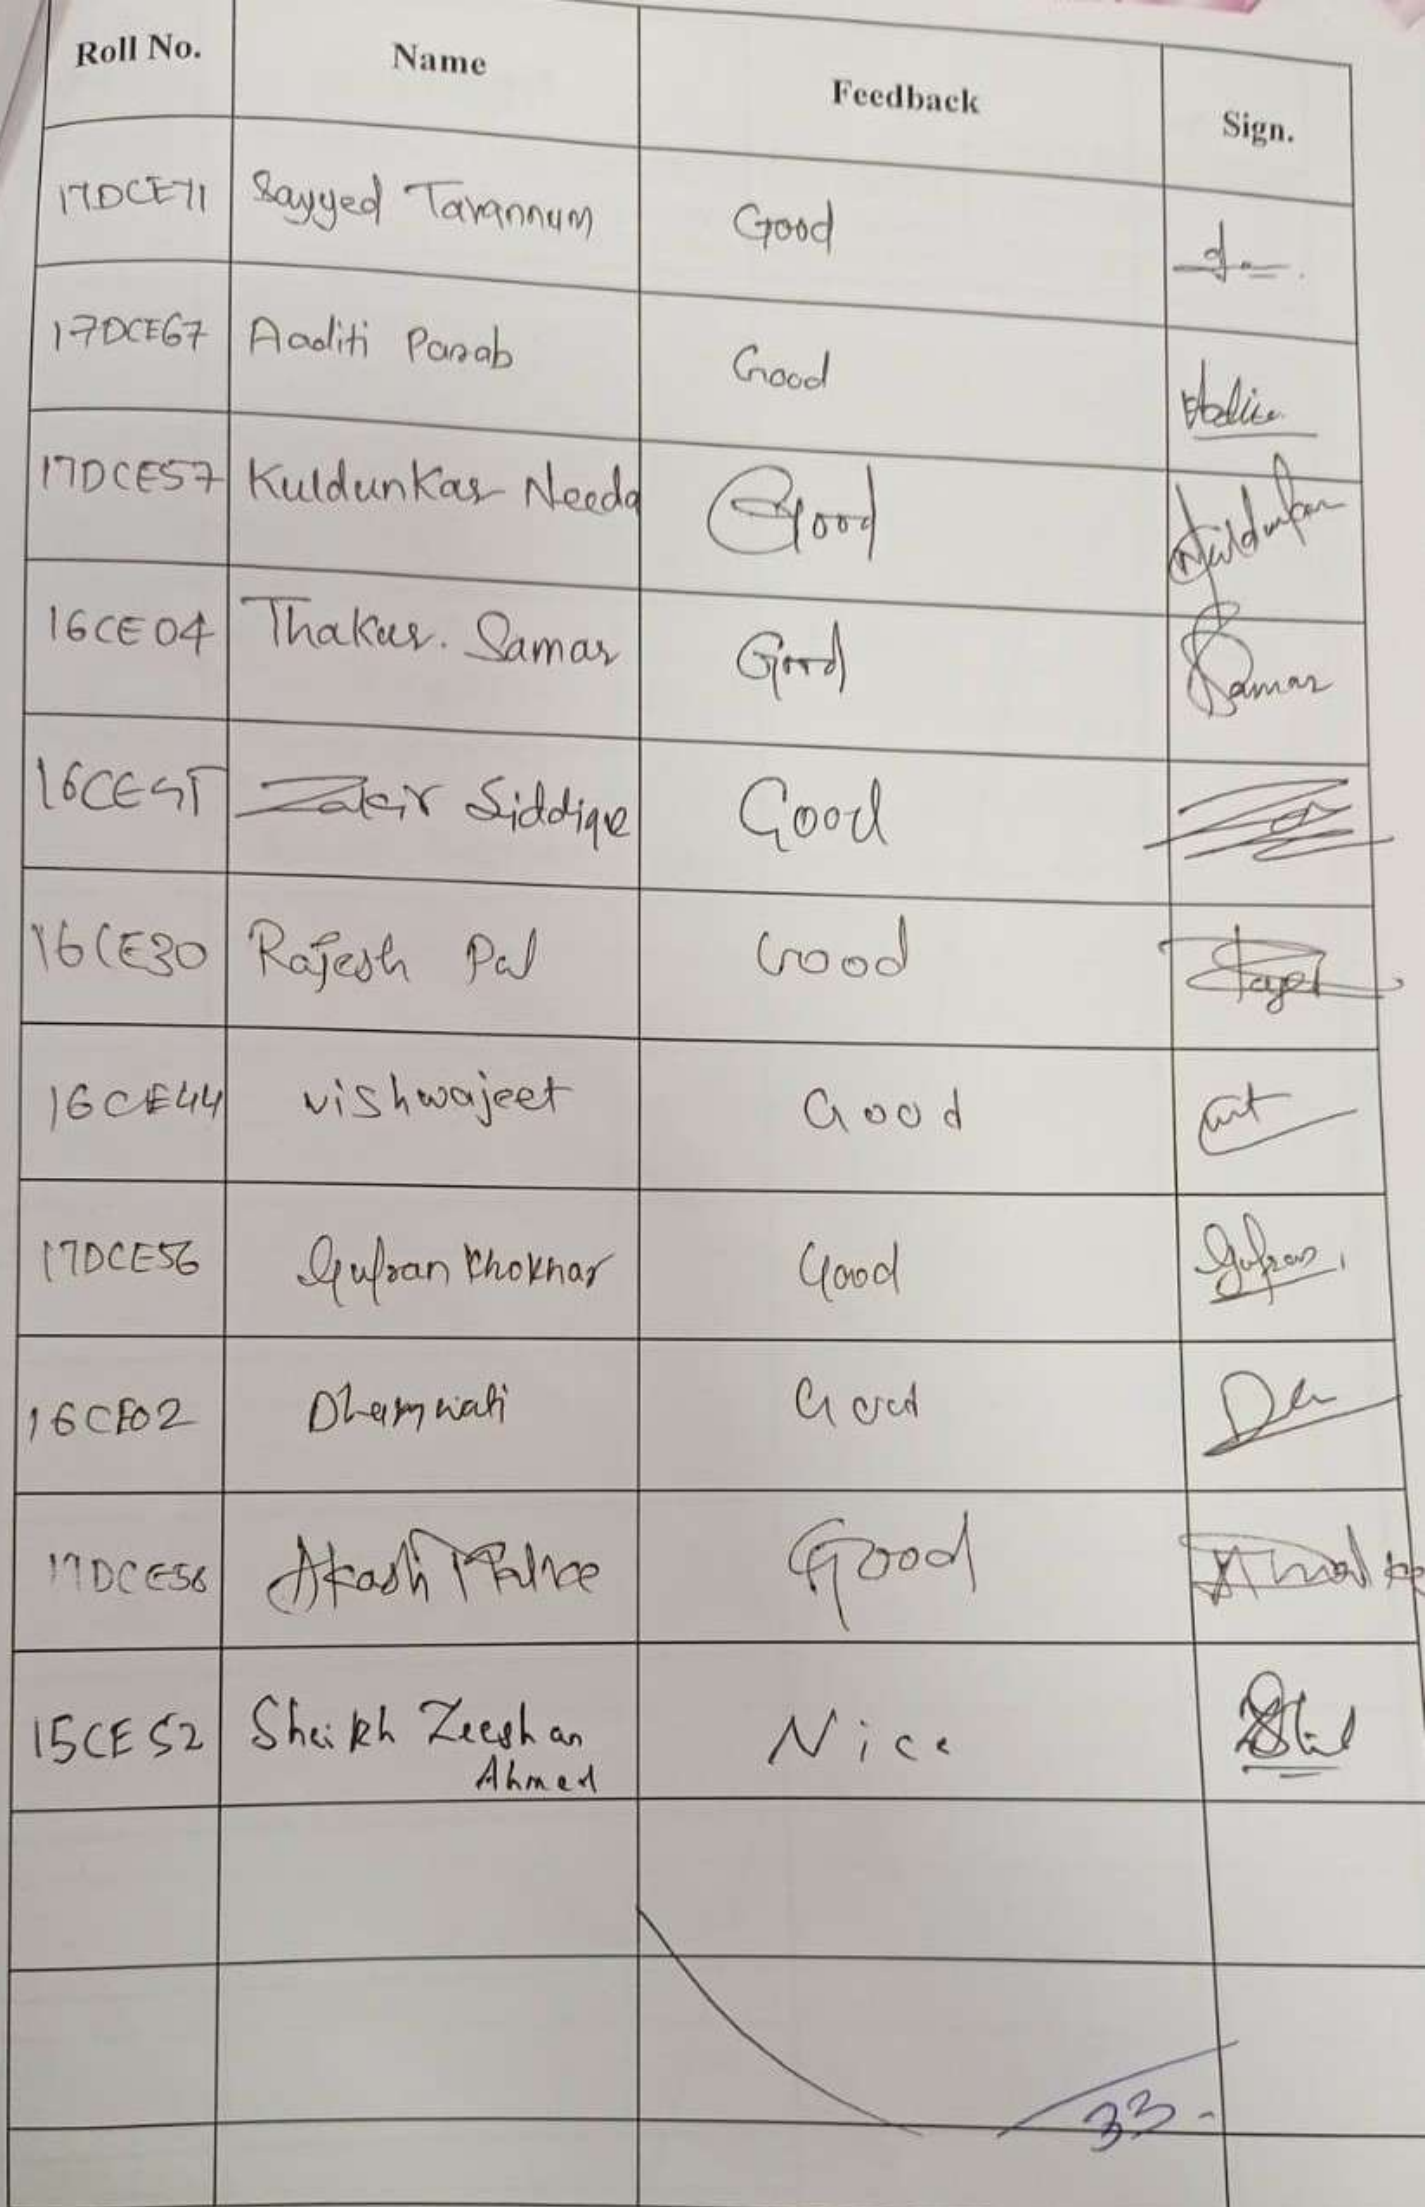 Roll No. Name Feedback Sign.
17DCE71 Sayyed Tarannum Good
17DCE67 Aaditi Parab Good
17DCE57 Kuldunkar Needa Good Kuldunkar
16CE04 Thakur. Samar Good Samar
Zakir Siddique Good
16CE30 Rajesh Pal Good
16CE44 vishwajeet Good
17DCE56 Gufran Khokhar Good Gufran
16CE02 Good
17DCE56 Akash Good
15CE52 Sheikh Zeeshan Nice
Ahmed
33